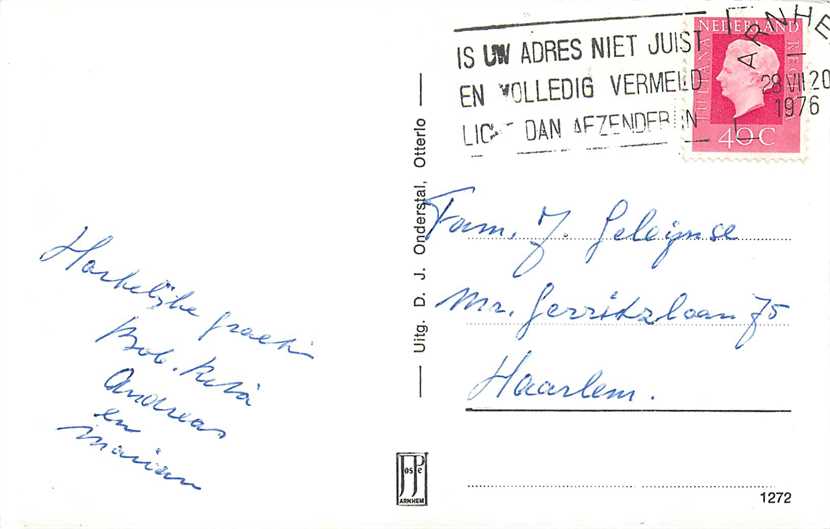 IS UW ADRES NIET JUIST
EN VOLLEDIG VERMELD
LIC DAN AFZENDER IN
ARNHE
28 VII 20
1976
NEDERLAND
JULIANA REGINA
40 C
Uitg. D. J. Onderstal, Otterlo
Fam. J. Geleijnse
Mr. Gerritzlaan 75
Haarlem.
Hartelijke groeten
Bob. Rita
Andreas
en
Marian
JosPe
ARNHEM
1272